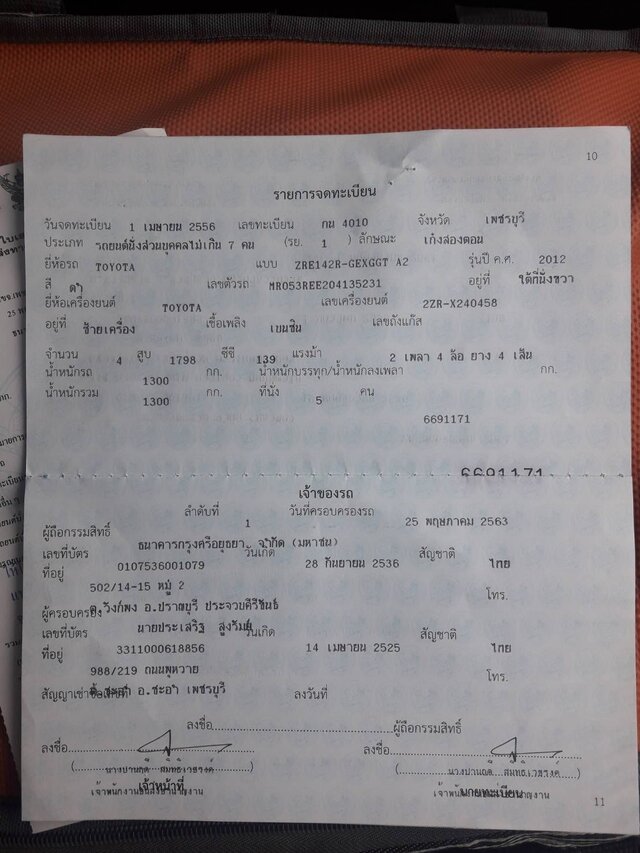 10
รายการจดทะเบียน
วันจดทะเบียน 1 เมษายน 2556 เลขทะเบียน กน 4010 จังหวัด เพชรบุรี
ประเภท รถยนต์นั่งส่วนบุคคลไม่เกิน 7 คน (รย. 1 ) ลักษณะ เก๋งสองตอน
ยี่ห้อรถ TOYOTA แบบ ZRE142R-GEXGGT A2 รุ่นปี ค.ศ. 2012
สี ดำ เลขตัวรถ MR053REE204135231 อยู่ที่ ใต้ที่นั่งขวา
ยี่ห้อเครื่องยนต์ TOYOTA เลขเครื่องยนต์ 2ZR-X240458
อยู่ที่ ซ้ายเครื่อง เชื้อเพลิง เบนซิน เลขถังแก๊ส
จำนวน 4 สูบ 1798 ซีซี 139 แรงม้า 2 เพลา 4 ล้อ ยาง 4 เส้น
น้ำหนักรถ 1300 กก. น้ำหนักบรรทุก/น้ำหนักลงเพลา กก.
น้ำหนักรวม 1300 กก. ที่นั่ง 5 คน
6691171
6691171
เจ้าของรถ
ลำดับที่ 1 วันที่ครอบครองรถ 25 พฤษภาคม 2563
ผู้ถือกรรมสิทธิ์ ธนาคารกรุงศรีอยุธยา จำกัด (มหาชน)
เลขที่บัตร 0107536001079 วันเกิด 28 กันยายน 2536 สัญชาติ ไทย
ที่อยู่ 502/14-15 หมู่ 2 โทร.
ต.วังก์พง อ.ปราณบุรี ประจวบคีรีขันธ์
ผู้ครอบครอง นายประเสริฐ
เลขที่บัตร 3311000618856 วันเกิด 14 เมษายน 2525 สัญชาติ ไทย
ที่อยู่ 988/219 ถนน โทร.
ต.ชะอำ อ.ชะอำ เพชรบุรี
สัญญาเช่าซื้อเลขที่ ลงวันที่
ลงชื่อ ผู้ถือกรรมสิทธิ์
ลงชื่อ ลงชื่อ
เจ้าหน้าที่ นายทะเบียน
11